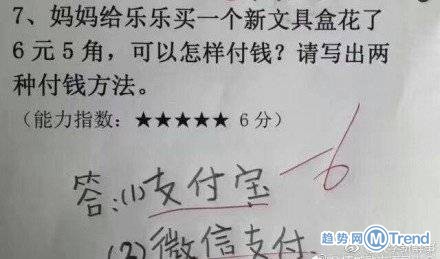 7、妈妈给乐乐买一个新文具盒花了
6元5角，可以怎样付钱？请写出两
种付钱方法。
（能力指数：★★★★★ 6分）
答：(1)支付宝
-6
(2)微信支付
趋势网 M Trend